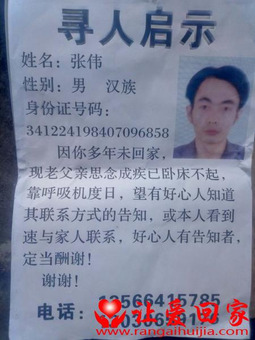 寻人启示
姓名：张伟
性别：男 汉族
身份证号码：
341224198407096858
因你多年未回家，
现老父亲思念成疾已卧床不起，
靠呼吸机度日，望有好心人知道
其联系方式的告知，或本人看到
速与家人联系，好心人有告知者，
定当酬谢！
谢谢！
电话：
让爱回家
www.rangaihuijia.com